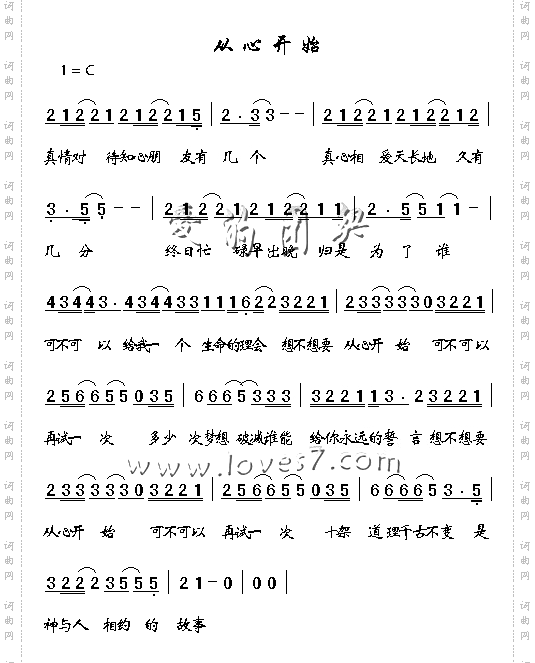 从心开始
1=C
2122121221215 | 2·33-- | 2122121221212 |
真情对 待知心朋 友有 几个 真心相 爱天长地 久有
3·55-- | 2122121221211 | 2·55511- |
几分 终日忙 碌早出晚 归是 为了谁
43443·43443311162233221 | 23333303221 |
可不可 以 给我一 个 生命的理会 想不想要 从心开 始 可不可以
25665655035 | 66665333 | 3222113·23221 |
再试一 次 多少 次梦想 破减谁能 给你永远的誓 言想不想要
www.loves7.com
23333303221 | 25665655035 | 6666653·5 |
从心开 始 可不可以 再试一 次 十架 道理千古不变 是
32223555 | 21-0 | 00 |
神与人 相约 的 故事
词曲网